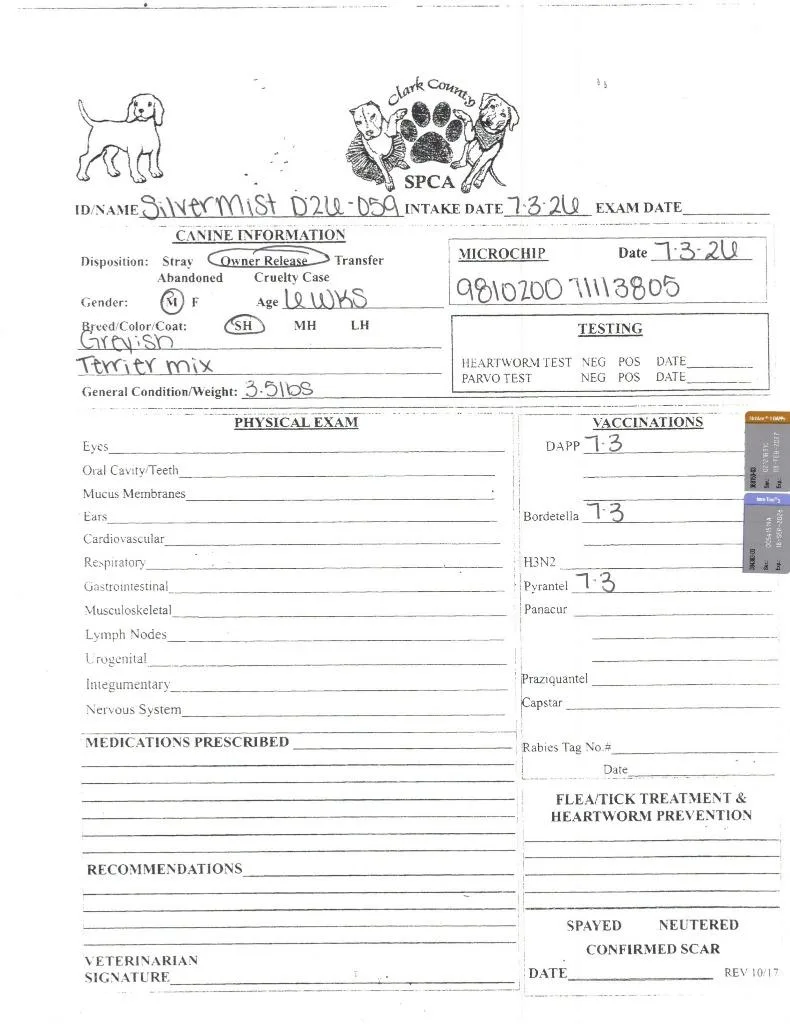 Clark County
SPCA
ID/NAME Silvermist D26-059 INTAKE DATE 7-3-26 EXAM DATE
CANINE INFORMATION
Disposition: Stray Owner Release Transfer
Abandoned Cruelty Case
Gender: M F Age 6 WKS
Breed/Color/Coat: SH MH LH
Greyish
Terrier mix
General Condition/Weight: 3.5lbs
MICROCHIP Date 7-3-26
981020071113805
TESTING
HEARTWORM TEST NEG POS DATE
PARVO TEST NEG POS DATE
PHYSICAL EXAM
Eyes
Oral Cavity/Teeth
Mucus Membranes
Ears
Cardiovascular
Respiratory
Gastrointestinal
Musculoskeletal
Lymph Nodes
Urogenital
Integumentary
Nervous System
MEDICATIONS PRESCRIBED
RECOMMENDATIONS
VETERINARIAN
SIGNATURE
VACCINATIONS
DAPP 7-3
Bordetella 7-3
H3N2
Pyrantel 7-3
Panacur
Praziquantel
Capstar
Rabies Tag No.#
Date
FLEA/TICK TREATMENT &
HEARTWORM PREVENTION
SPAYED NEUTERED
CONFIRMED SCAR
DATE REV 10/17